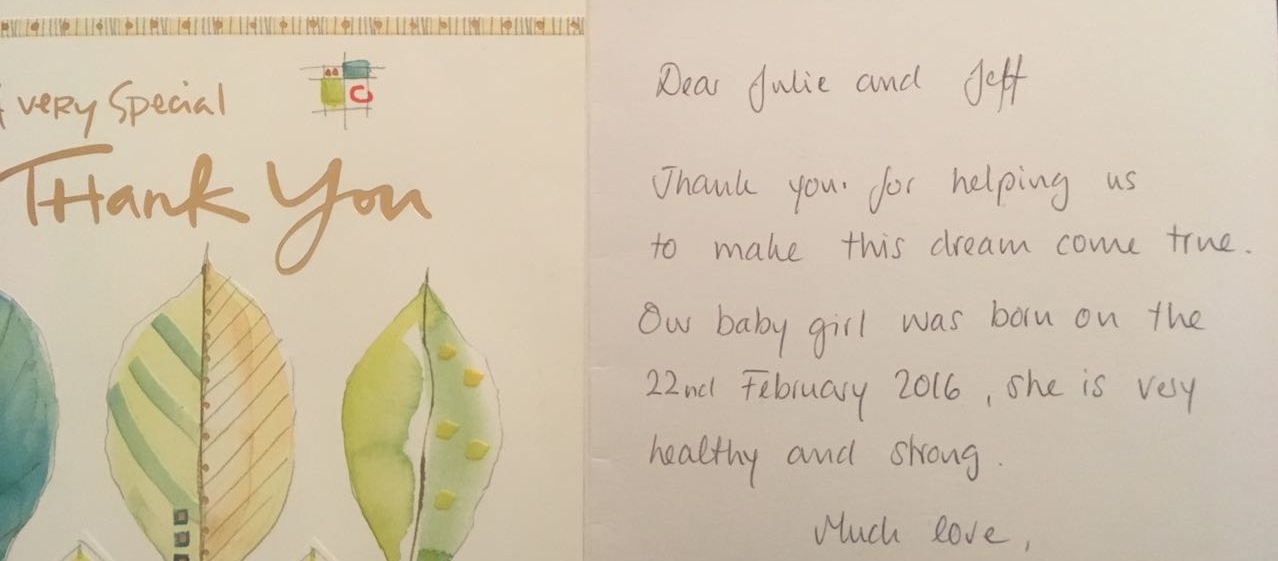 very Special
Thank You
Dear Julie and Jeff
Thank you for helping us
to make this dream come true.
Our baby girl was born on the
22nd February 2016, she is very
healthy and strong.
Much love,